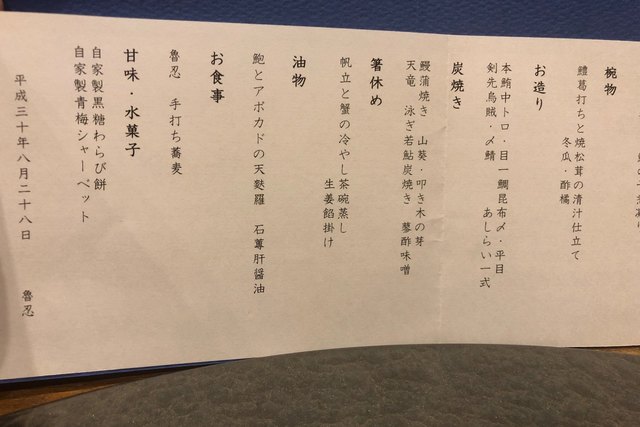 椀物
鱧葛打ちと焼松茸の清汁仕立て
冬瓜・酢橘
お造り
本鮪中トロ・目一鯛昆布〆・平目
剣先烏賊・〆鯖 あしらい一式
炭焼き
鰻蒲焼き 山葵・叩き木の芽
天竜 泳ぎ若鮎炭焼き 蓼酢味噌
箸休め
帆立と蟹の冷やし茶碗蒸し
生姜餡掛け
油物
鮑とアボカドの天麩羅 石蓴肝醤油
お食事
魯忍 手打ち蕎麦
甘味・水菓子
自家製黒糖わらび餅
自家製青梅シャーベット
平成三十年八月二十八日 魯忍